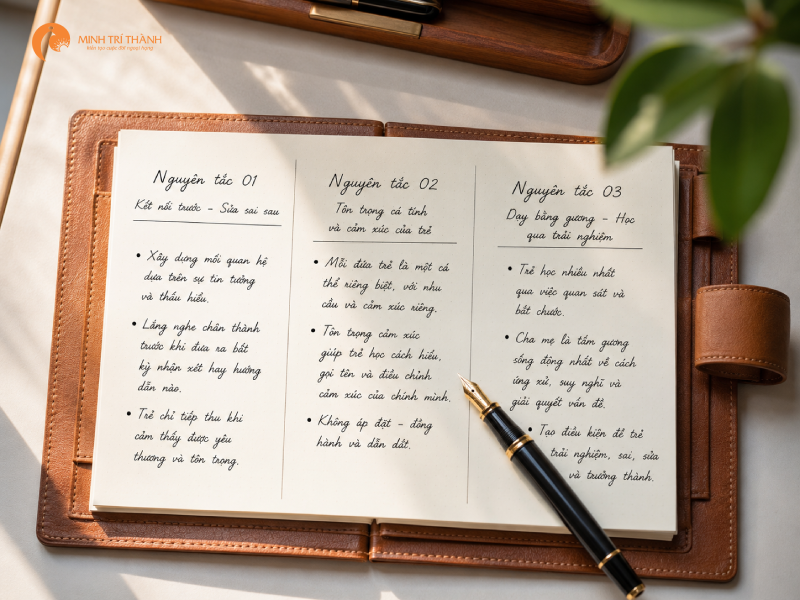 MINH TRÍ THÀNH
Kiến tạo cuộc đời ngoại hạng
Nguyên tắc 01
Kết nối trước - Sửa sai sau
• Xây dựng mối quan hệ
dựa trên sự tin tưởng
và thấu hiểu.
• Lắng nghe chân thành
trước khi đưa ra bất
kỳ nhận xét hay hướng
dẫn nào.
• Trẻ chỉ tiếp thu khi
cảm thấy được yêu
thương và tôn trọng.
Nguyên tắc 02
Tôn trọng cá tính
và cảm xúc của trẻ
• Mỗi đứa trẻ là một cá
thể riêng biệt, với nhu
cầu và cảm xúc riêng.
• Tôn trọng cảm xúc
giúp trẻ học cách hiểu,
gọi tên và điều chỉnh
cảm xúc của chính mình.
• Không áp đặt - đồng
hành và dẫn dắt.
Nguyên tắc 03
Dạy bằng gương - Học
qua trải nghiệm
• Trẻ học nhiều nhất
qua việc quan sát và
bắt chước.
• Cha mẹ là tấm gương
sống động nhất về cách
ứng xử, suy nghĩ và
giải quyết vấn đề.
• Tạo điều kiện để trẻ
trải nghiệm, sai, sửa
và trưởng thành.